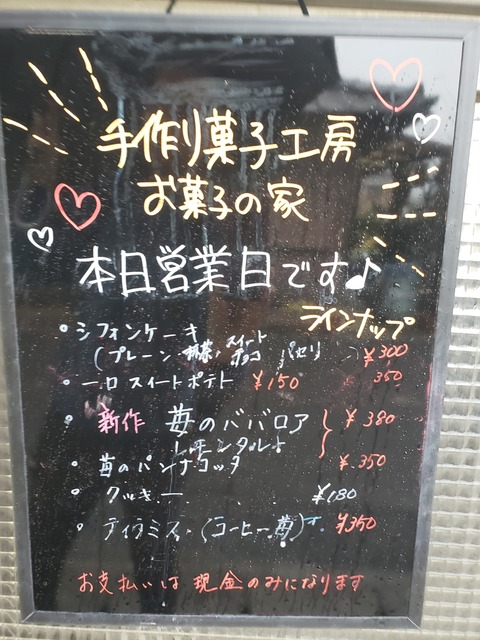 手作り菓子工房
お菓子の家
本日営業日です♪
ラインナップ
・シフォンケーキ
(プレーン・抹茶・スイートチョコ パセリ ) ¥300
350
・一口スイートポテト ¥150
・新作 苺のババロア } ¥380
レモンタルト
・苺のパンナコッタ ¥350
・クッキー ¥180
・ティラミス・(コーヒー・苺) ¥350
お支払いは現金のみになります